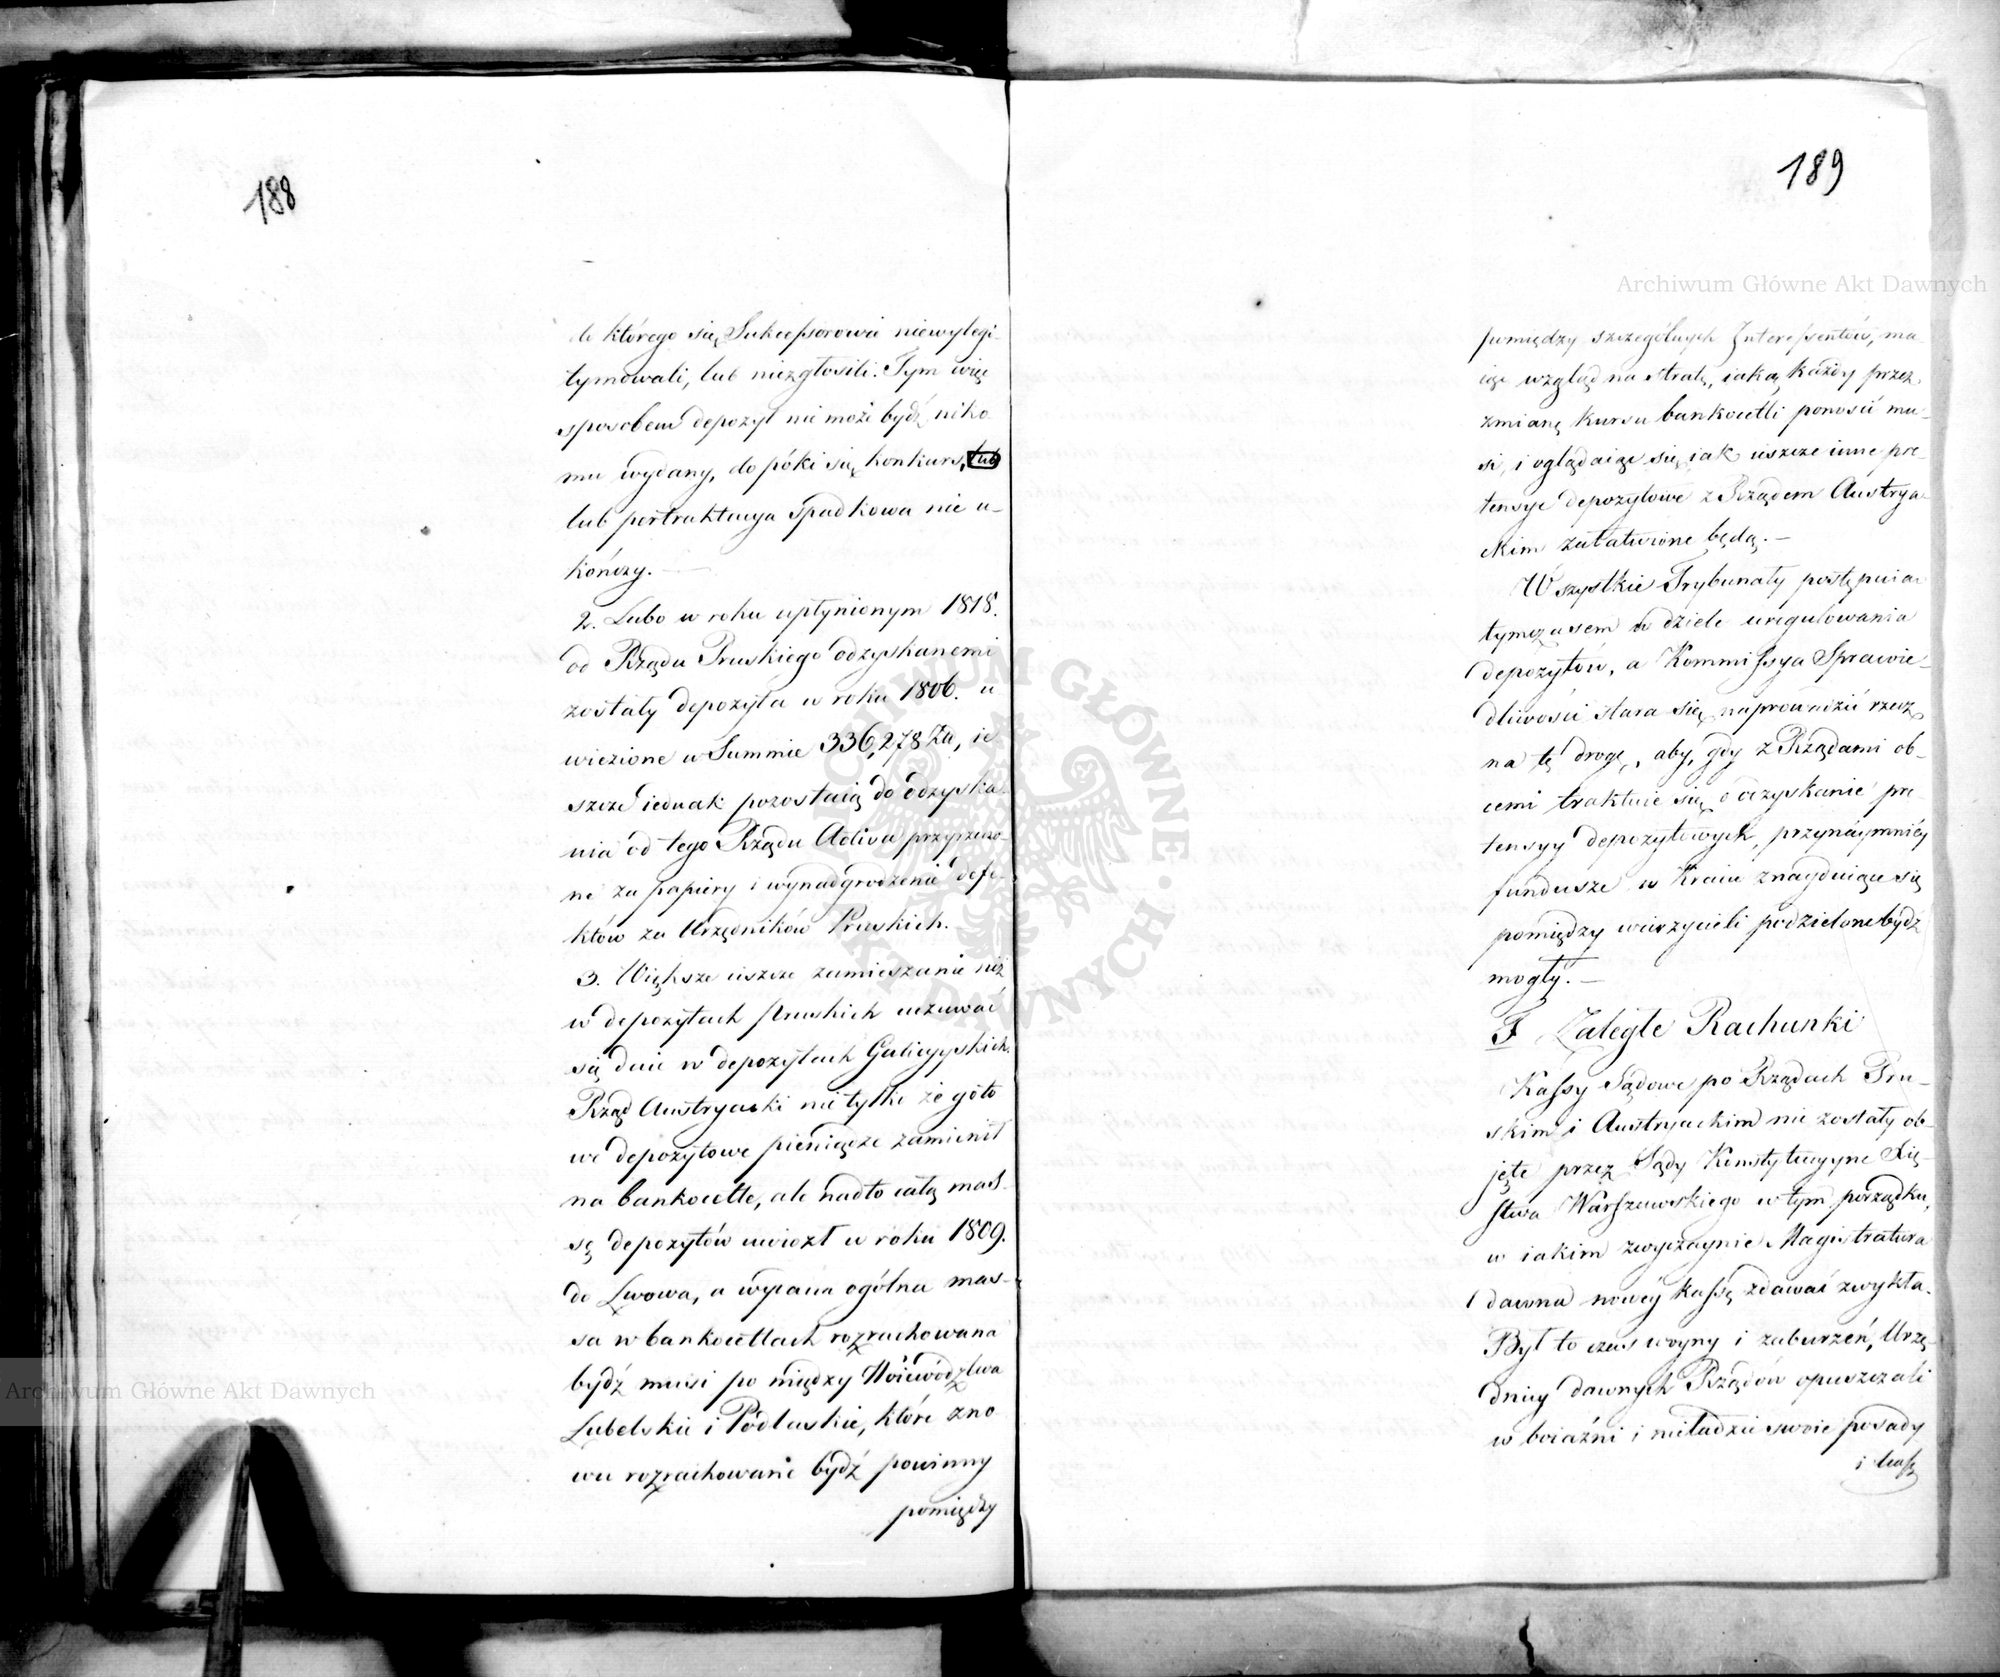 188
do którego się Sukcessorowie niewylegi-
tymowali, lub niezgłosili. Tym więc
sposobem depozyt nie może bydź niko
mu wydany, do póki się konkurs, lub
lub pertraktacya spadkowa nie u-
kończy. —
2. Lubo w roku upłynionym 1818.
od Rządu Pruskiego odzyskanemi
zostały depozyta w roku 1806. u
wiezione w Summie 336,278 Zł, ie
szcze iednak pozostaią do odzyska-
nia od tego Rządu Activa przyrzeczo-
ne za papiery i wynadgrodzenie defe-
któw za Urzędników Pruskich. —
3. Większe ieszcze zamieszanie niż
w depozytach Pruskich uczuwać
się daie w depozytach Galicyyskich.
Rząd Austryacki nie tylko że goto
we depozytowe pieniądze zamienił
na bankocetle, ale nadto całą mas-
sę depozytów uwiozł w roku 1809.
do Lwowa, a wydana ogólna mas-
sa w bankocetlach rozrachowana
bydź musi po między Woiewództwa
Lubelskie i Podlaskie, które zno
wu rozrachowane bydź powinny
pomiędzy
189
pomiędzy szczególnych Interessentów, ma-
iąc wzgląd na stratę, iaką każdy przez
zmianę kursu bankocetli ponosić mu-
si, i oglądaiąc się, iak ieszcze inne pre-
tensye depozytowe z Rządem Austrya-
ckim załatwione będą. —
Wszystkie Trybunały postępuią
tymczasem w dziele uregulowania
depozytów, a Kommissya Sprawie-
dliwości stara się naprowadzić rzecz
na tę drogę, aby, gdy z Rządami ob-
cemi traktuie się o odzyskanie pre
tensyy depozytowych, przynaymniey
fundusze w Kraiu znayduiące się
pomiędzy wierzycieli podzielone bydź
mogły. —
F Zaległe Rachunki
Kassy Sądowe po Rządach Pru-
skim i Austryackim nie zostały ob-
jęte przez Sądy Konstytucyyne Xię-
stwa Warszawskiego w tym porządku,
w iakim zwyczaynie Magistratura
dawna nowey kassę zdawać zwykła.
Był to czas woyny i zaburzeń, Urzę-
dnicy dawnych Rządów opuszczali
w boiaźni i nieładzie swoie posady
i kassy
Archiwum Główne Akt Dawnych
Archiwum Główne Akt Dawnych
ARCHIWUM GŁÓWNE AKT DAWNYCH